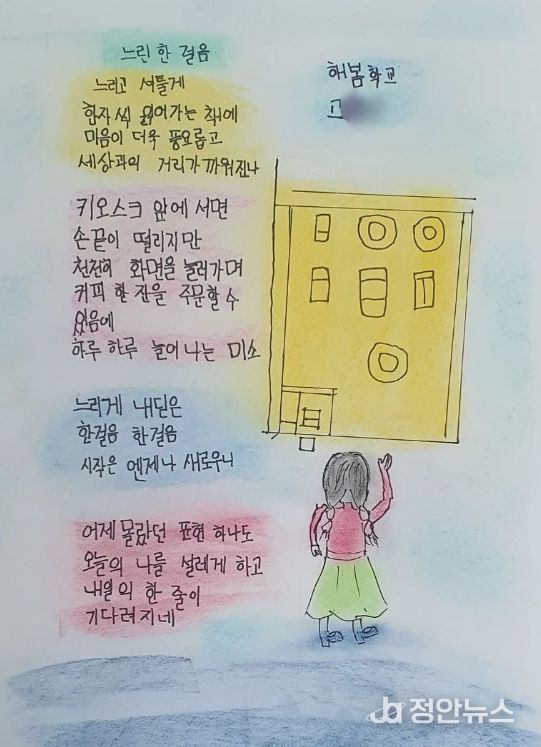 느린 한 걸음
해봄학교
고
느리고 서툴게
한자씩 읽어가는 책에
마음이 더욱 풍요롭고
세상과의 거리가 까워진나
키오스크 앞에 서면
손끝이 떨리지만
천천히 화면을 눌러가며
커피 한 잔을 주문할 수
있음에
하루 하루 늘어 나는 미소
느리게 내딛은
한걸음 한걸음
시작은 언제나 새로우니
어제 몰랐던 표현 하나도
오늘의 나를 설레게 하고
내일의 한 줄이
기다려지네
정안뉴스